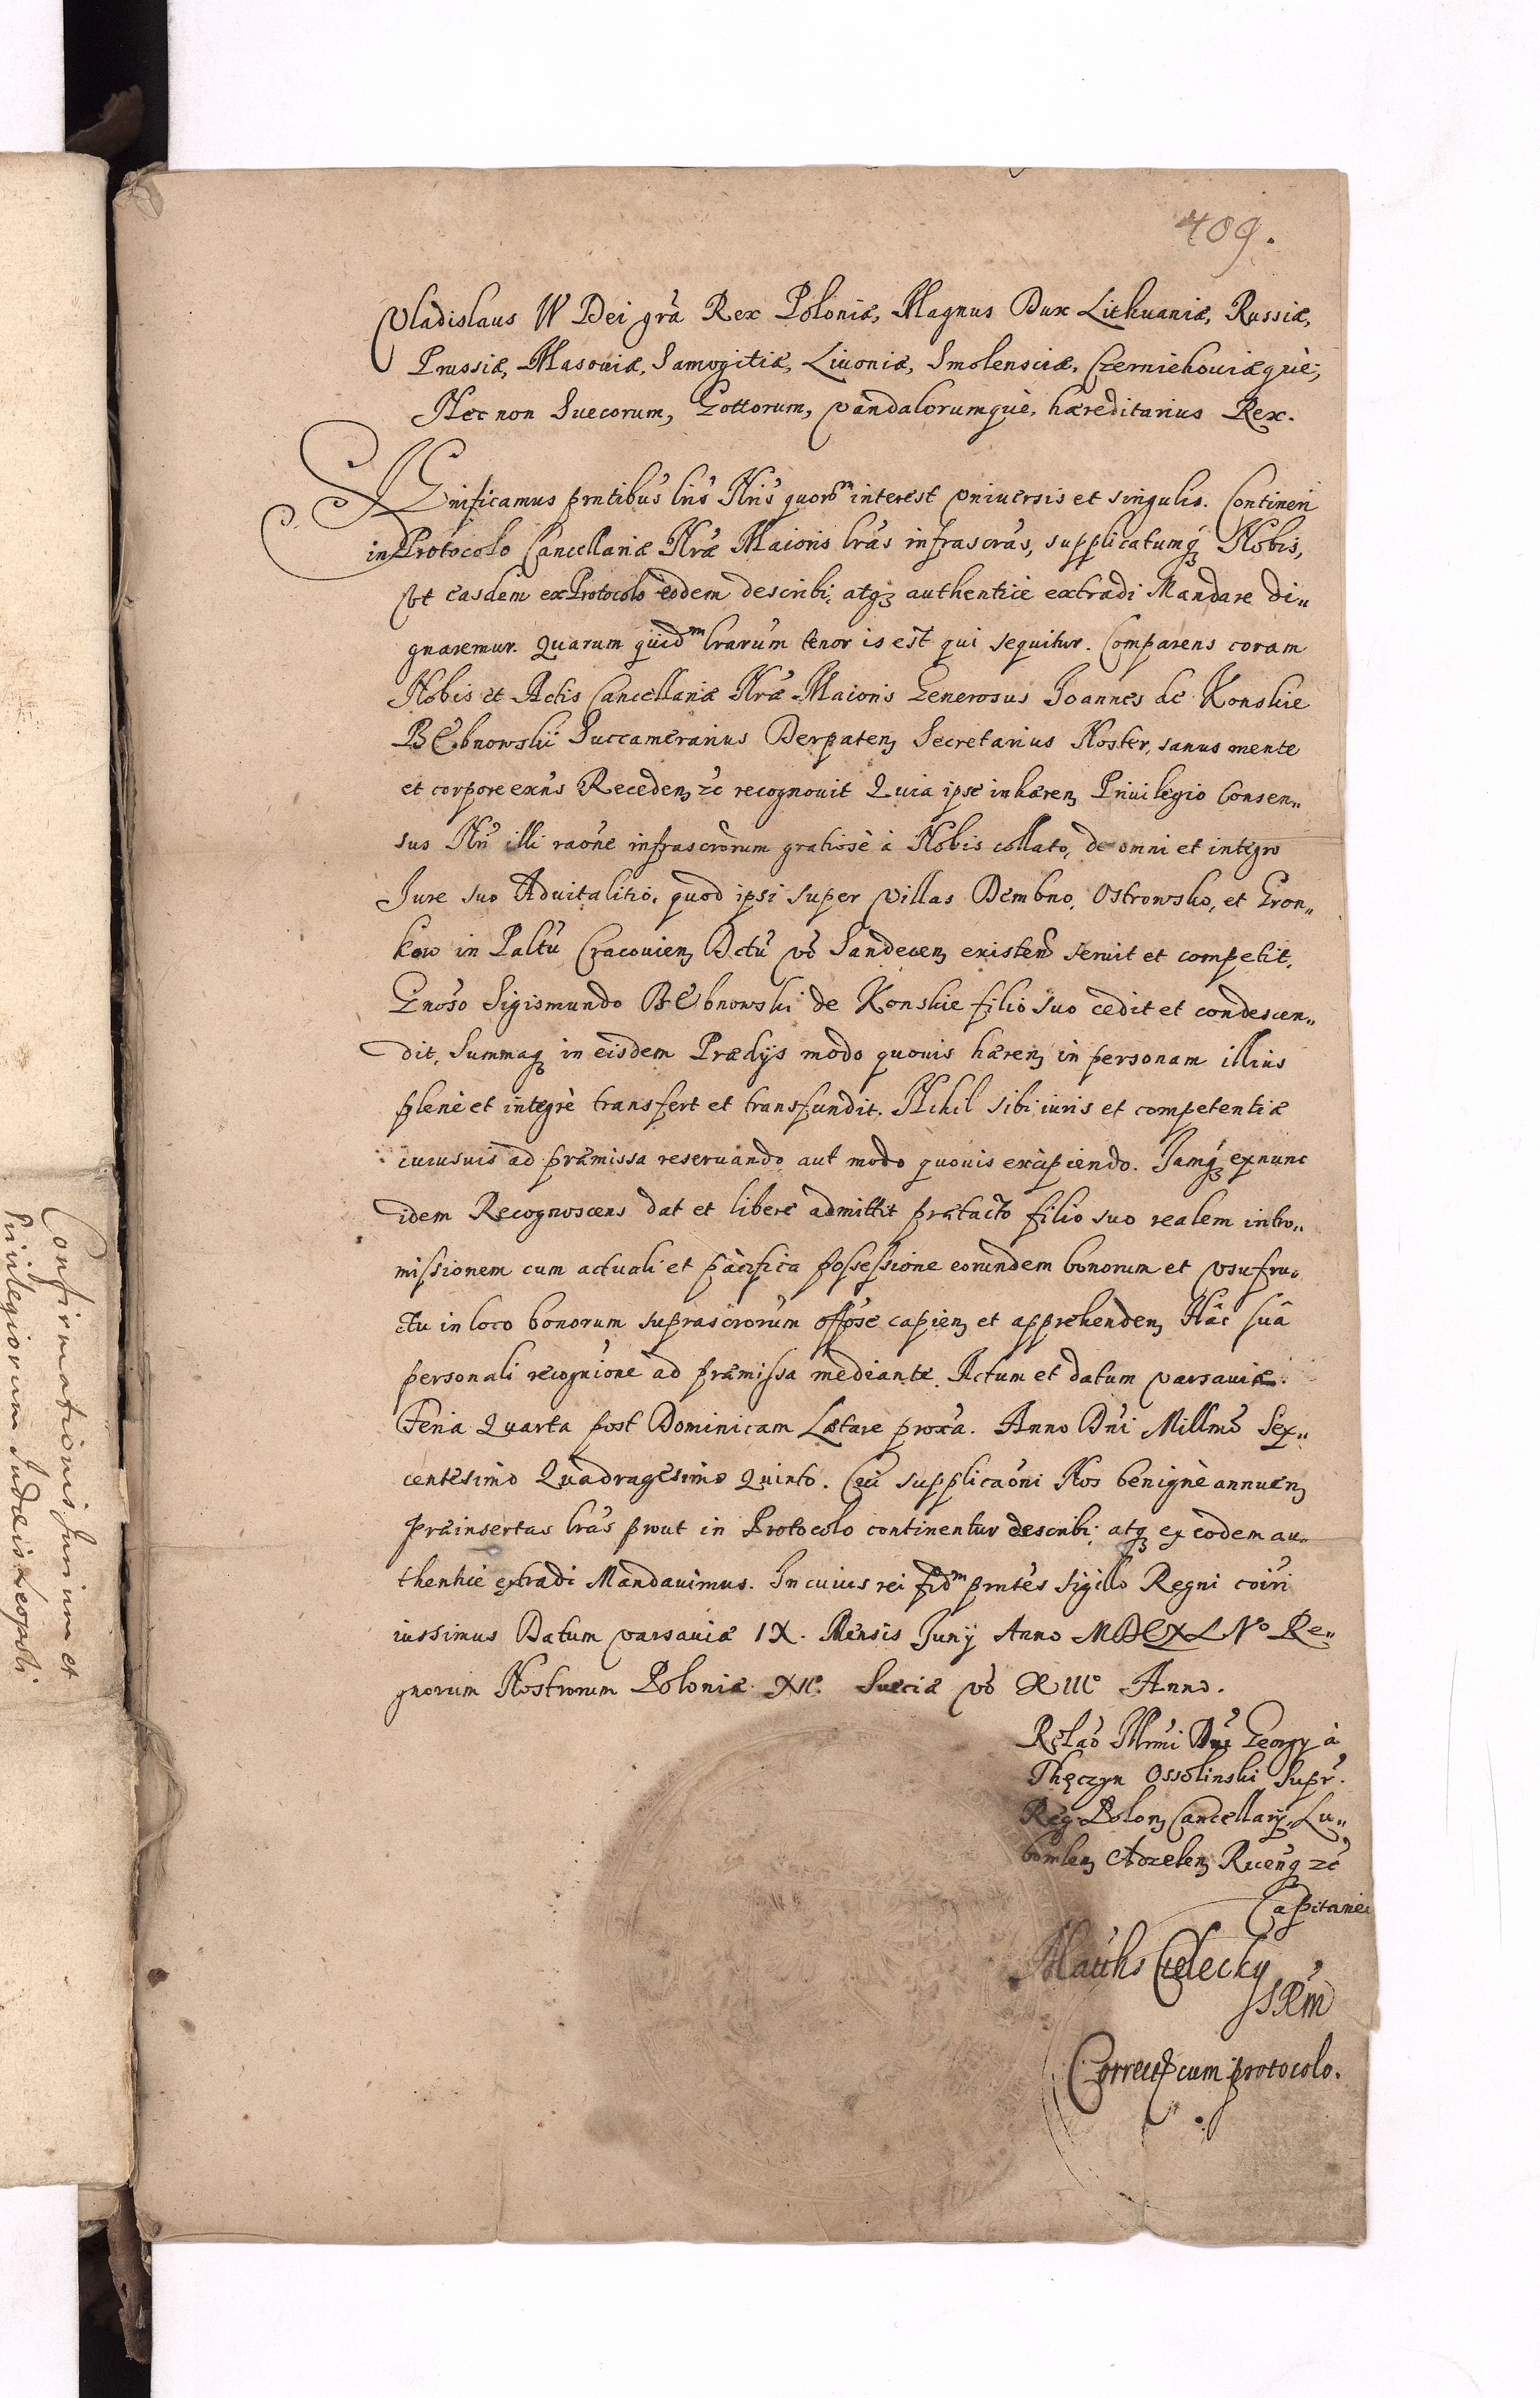 409.
Vladislaus IV Dei grã Rex Poloniæ, Magnus Dux Lithuaniæ, Russiæ,
Prussiæ, Masouiæ, Samogitiæ, Liuoniæ, Smolensciæ, Czerniehouiæquè,
Nec non Suecorum, Gottorum, Vandalorumquè, hæreditarius Rex.
SIGnificamus pñtibus lrıs Nrıs quorm interest Vniuersis et singulis. Contineri
in Protocolo Cancellariæ Nræ Maioris lras infrascras, supplicatumq3 Nobis,
Vt easdem ex Protocolo eodem describi, atq3 authenticè extradi Mandare di„
gnaremur. Quarum quidm lrarum tenor is est qui sequitur. Comparens coram
Nobis et Actis Cancellariæ Nræ Maioris Generosus Joannes de Konskie
Bębnowski Succamerarius Derpaten, Secretarius Noster, sanus mente
et corpore exñs Receden, &c recognouit Quia ipse inhæren, Priuilegio Consen„
sus Nri illi raõne infrascrorum gratiosè à Nobis collato, de omni et integro
Jure suo Aduitalitio, quod ipsi super Villas Dembno, Ostrowsko, et Gron„
kow in Paltu Cracouien, Dctu vo Sandecen, existen seruit et competit,
Gnoso Sigismundo Bębnowski de Konskie filio suo cedit et condescen„
dit, Summaq3 in eisdem Prædijs modo quouis hæren, in personam illius
plenè et integrè transfert et transfundit. Nihil sibi iuris et competentiæ
cuiusuis ad præmissa reseruando aut modo quouis excipiendo. Jamq3 ex nunc
idem Recognoscens dat et liberè admittit prætacto filio suo realem intro„
missionem cum actuali et pacifica possessione eorundem bonorum et vsufru„
ctu in loco bonorum suprascrorum offose capien, et apprehenden, Hâc suâ
personali recognione ad præmissa mediante. Actum et datum Varsauiæ.
Feria Quarta post Dominicam Lætare proxa. Anno Dni Millmo Sex„
centesimo Quadragesimo Quinto. Cui supplicaoni Nos benignè annuen,
præinsertas lras prout in Protocolo continentur describi, atq3 ex eodem au„
thentice extradi Mandauimus. In cuius rei fidm pntes Sigillo Regni coiri
iussimus Datum Varsauiæ IX. Mensis Junij Anno MDCXLVo Re„
gnorum Nostrorum Poloniæ XIIo Sueciæ vo XIIIo Anno.
Relao Illrmi Dni Georgy à
Thęczyn Ossolinski Supr.
Reg. Polon, Cancellarij, Lu„
bomlen, Adzelen, &c
Capitanei
Cielecky
SRM
Correct cum protocolo.
Confirmationis Jurium et
Priuilegiorum Judæis Leopoli.